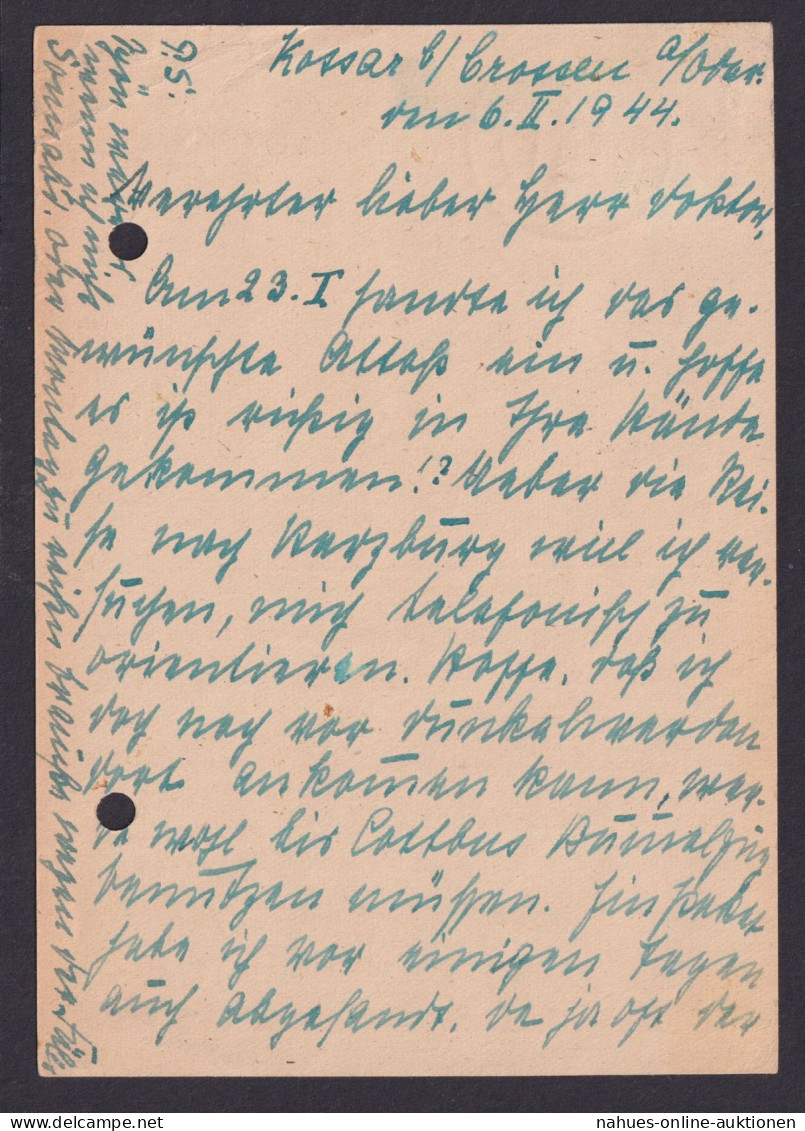 Kossar b/ Crossen a/Oder.
den 6.II.1944.
Verehrter lieber Herr Doktor,
Am 23.I sandte ich das ge-
wünschte Attest ein u. hoffe
es ist richtig in Ihre Hände
gekommen!? Ueber die Rei-
se nach Harzburg will ich ver-
suchen, mich telefonisch zu
orientieren. Hoffe, daß ich
doch noch vor Dunkelwerden
dort ankommen kann, wer-
de wohl bis Cottbus Bummelzug
benutzen müssen. Ein Paket
habe ich vor einigen Tagen
auch abgesandt, da ja oft der
9.5.
wenn ich nicht
Sonnabd. oder
wegen
nahues-online-auktionen